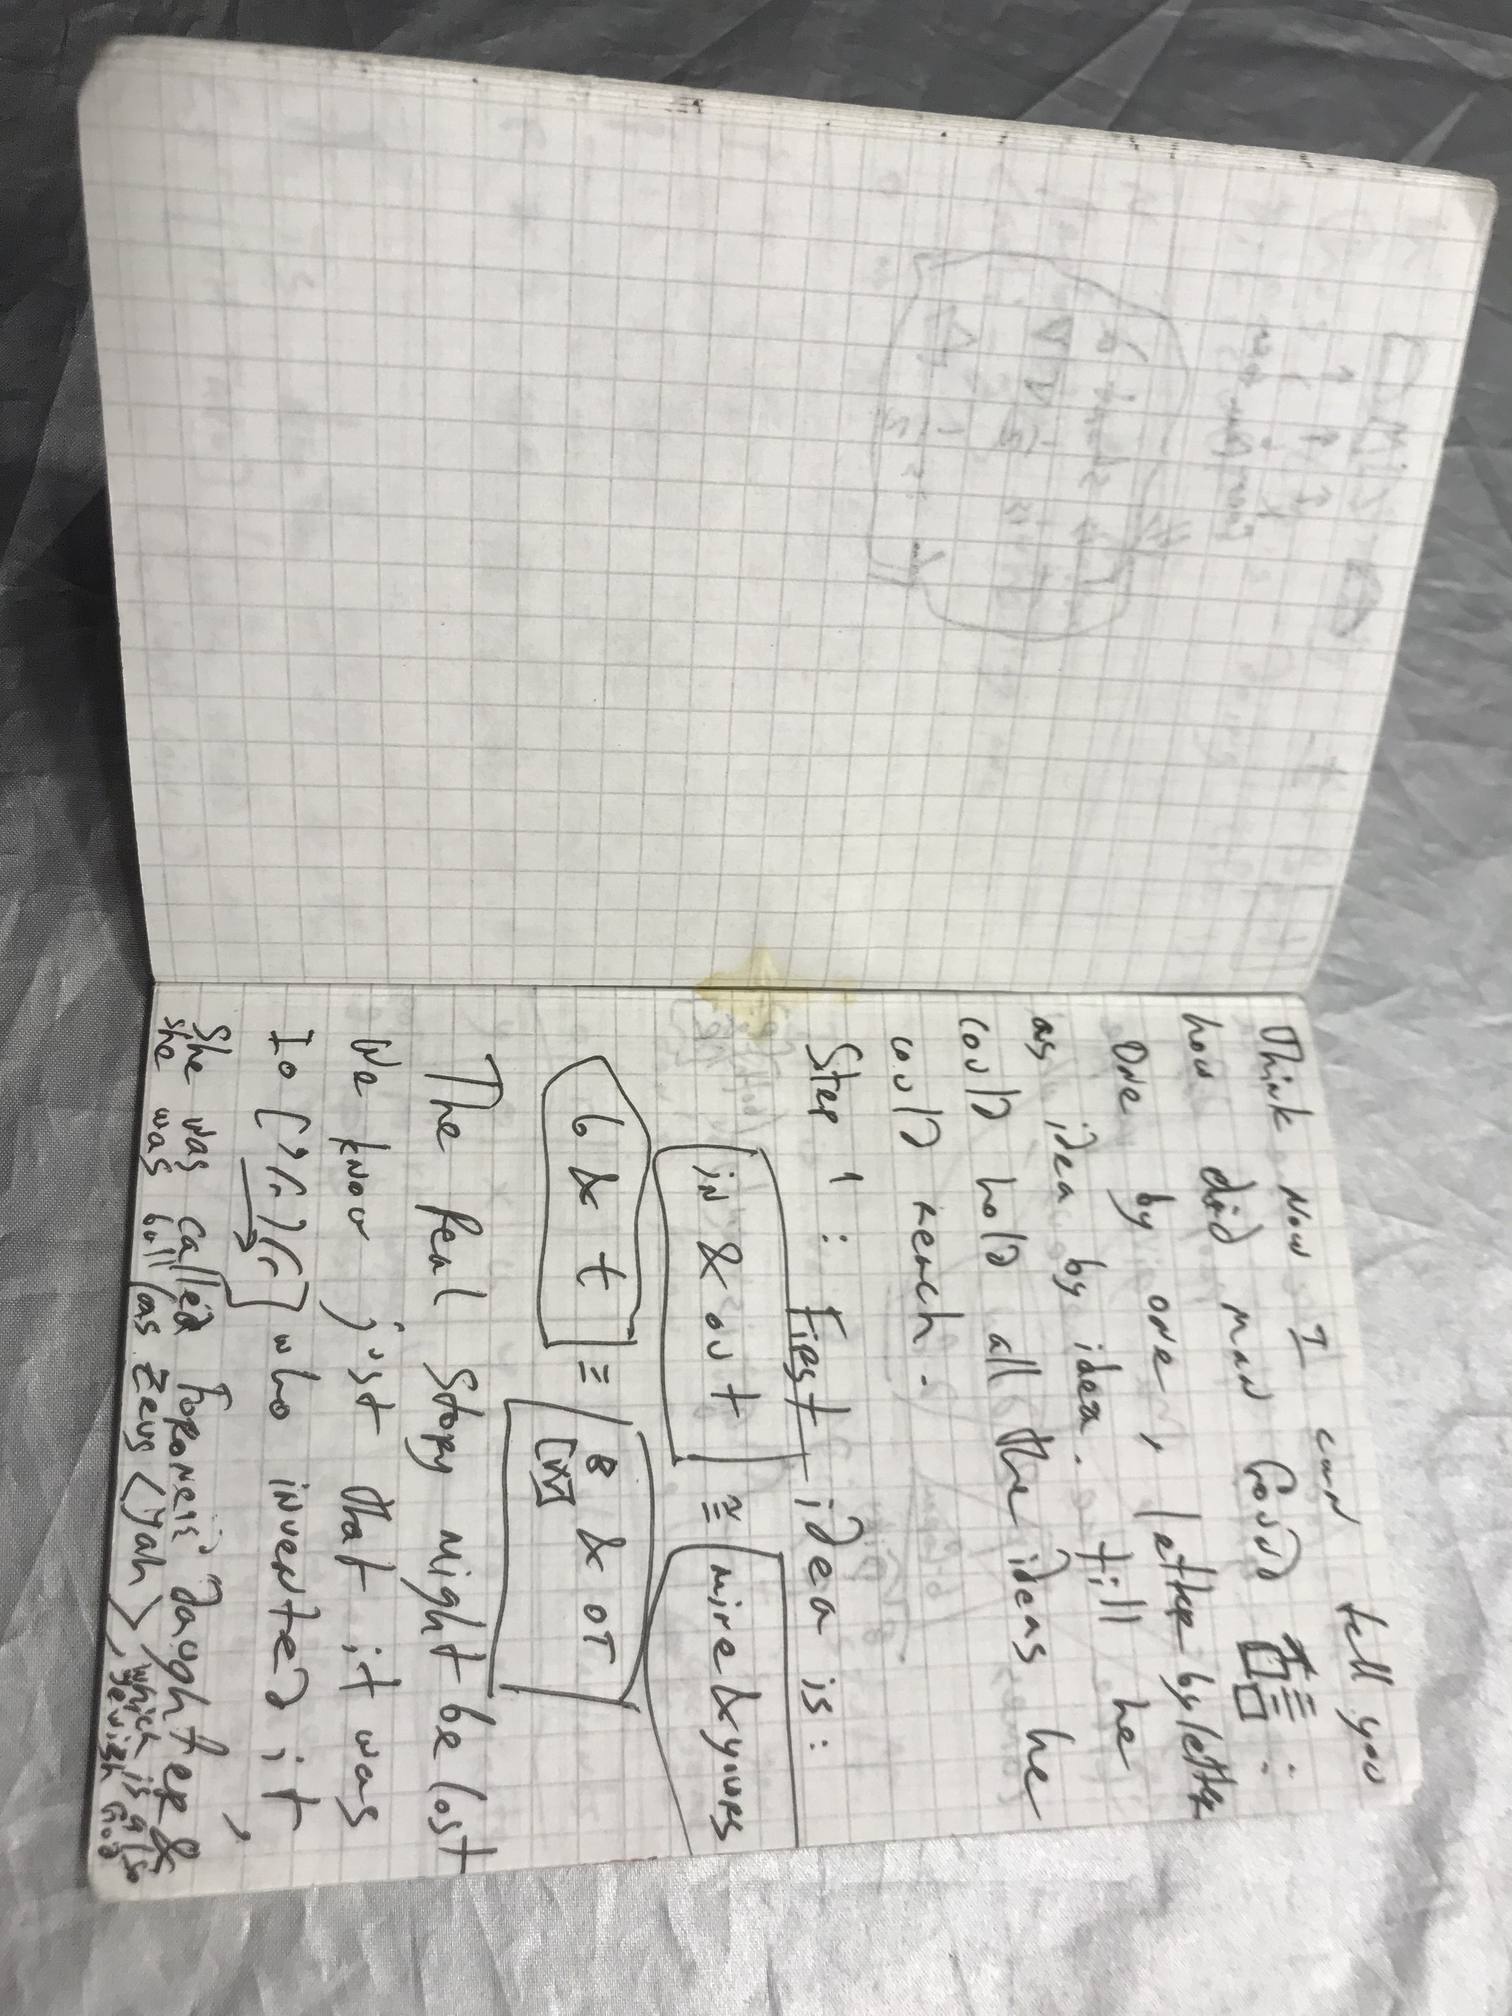 Think now I can tell you
how did man found
One by one, letter by letter
as idea by idea. till he
could hold all the ideas he
could reach.
Step 1: First idea is:
in & out ≅ mine & yours
6 & t ≡ 8 & or
The real story might be lost
We know just that it was
Io who invented it,
She was called Foroneis' daughter &
she was bull (as Zeus < Yah), which is also
Jewish God